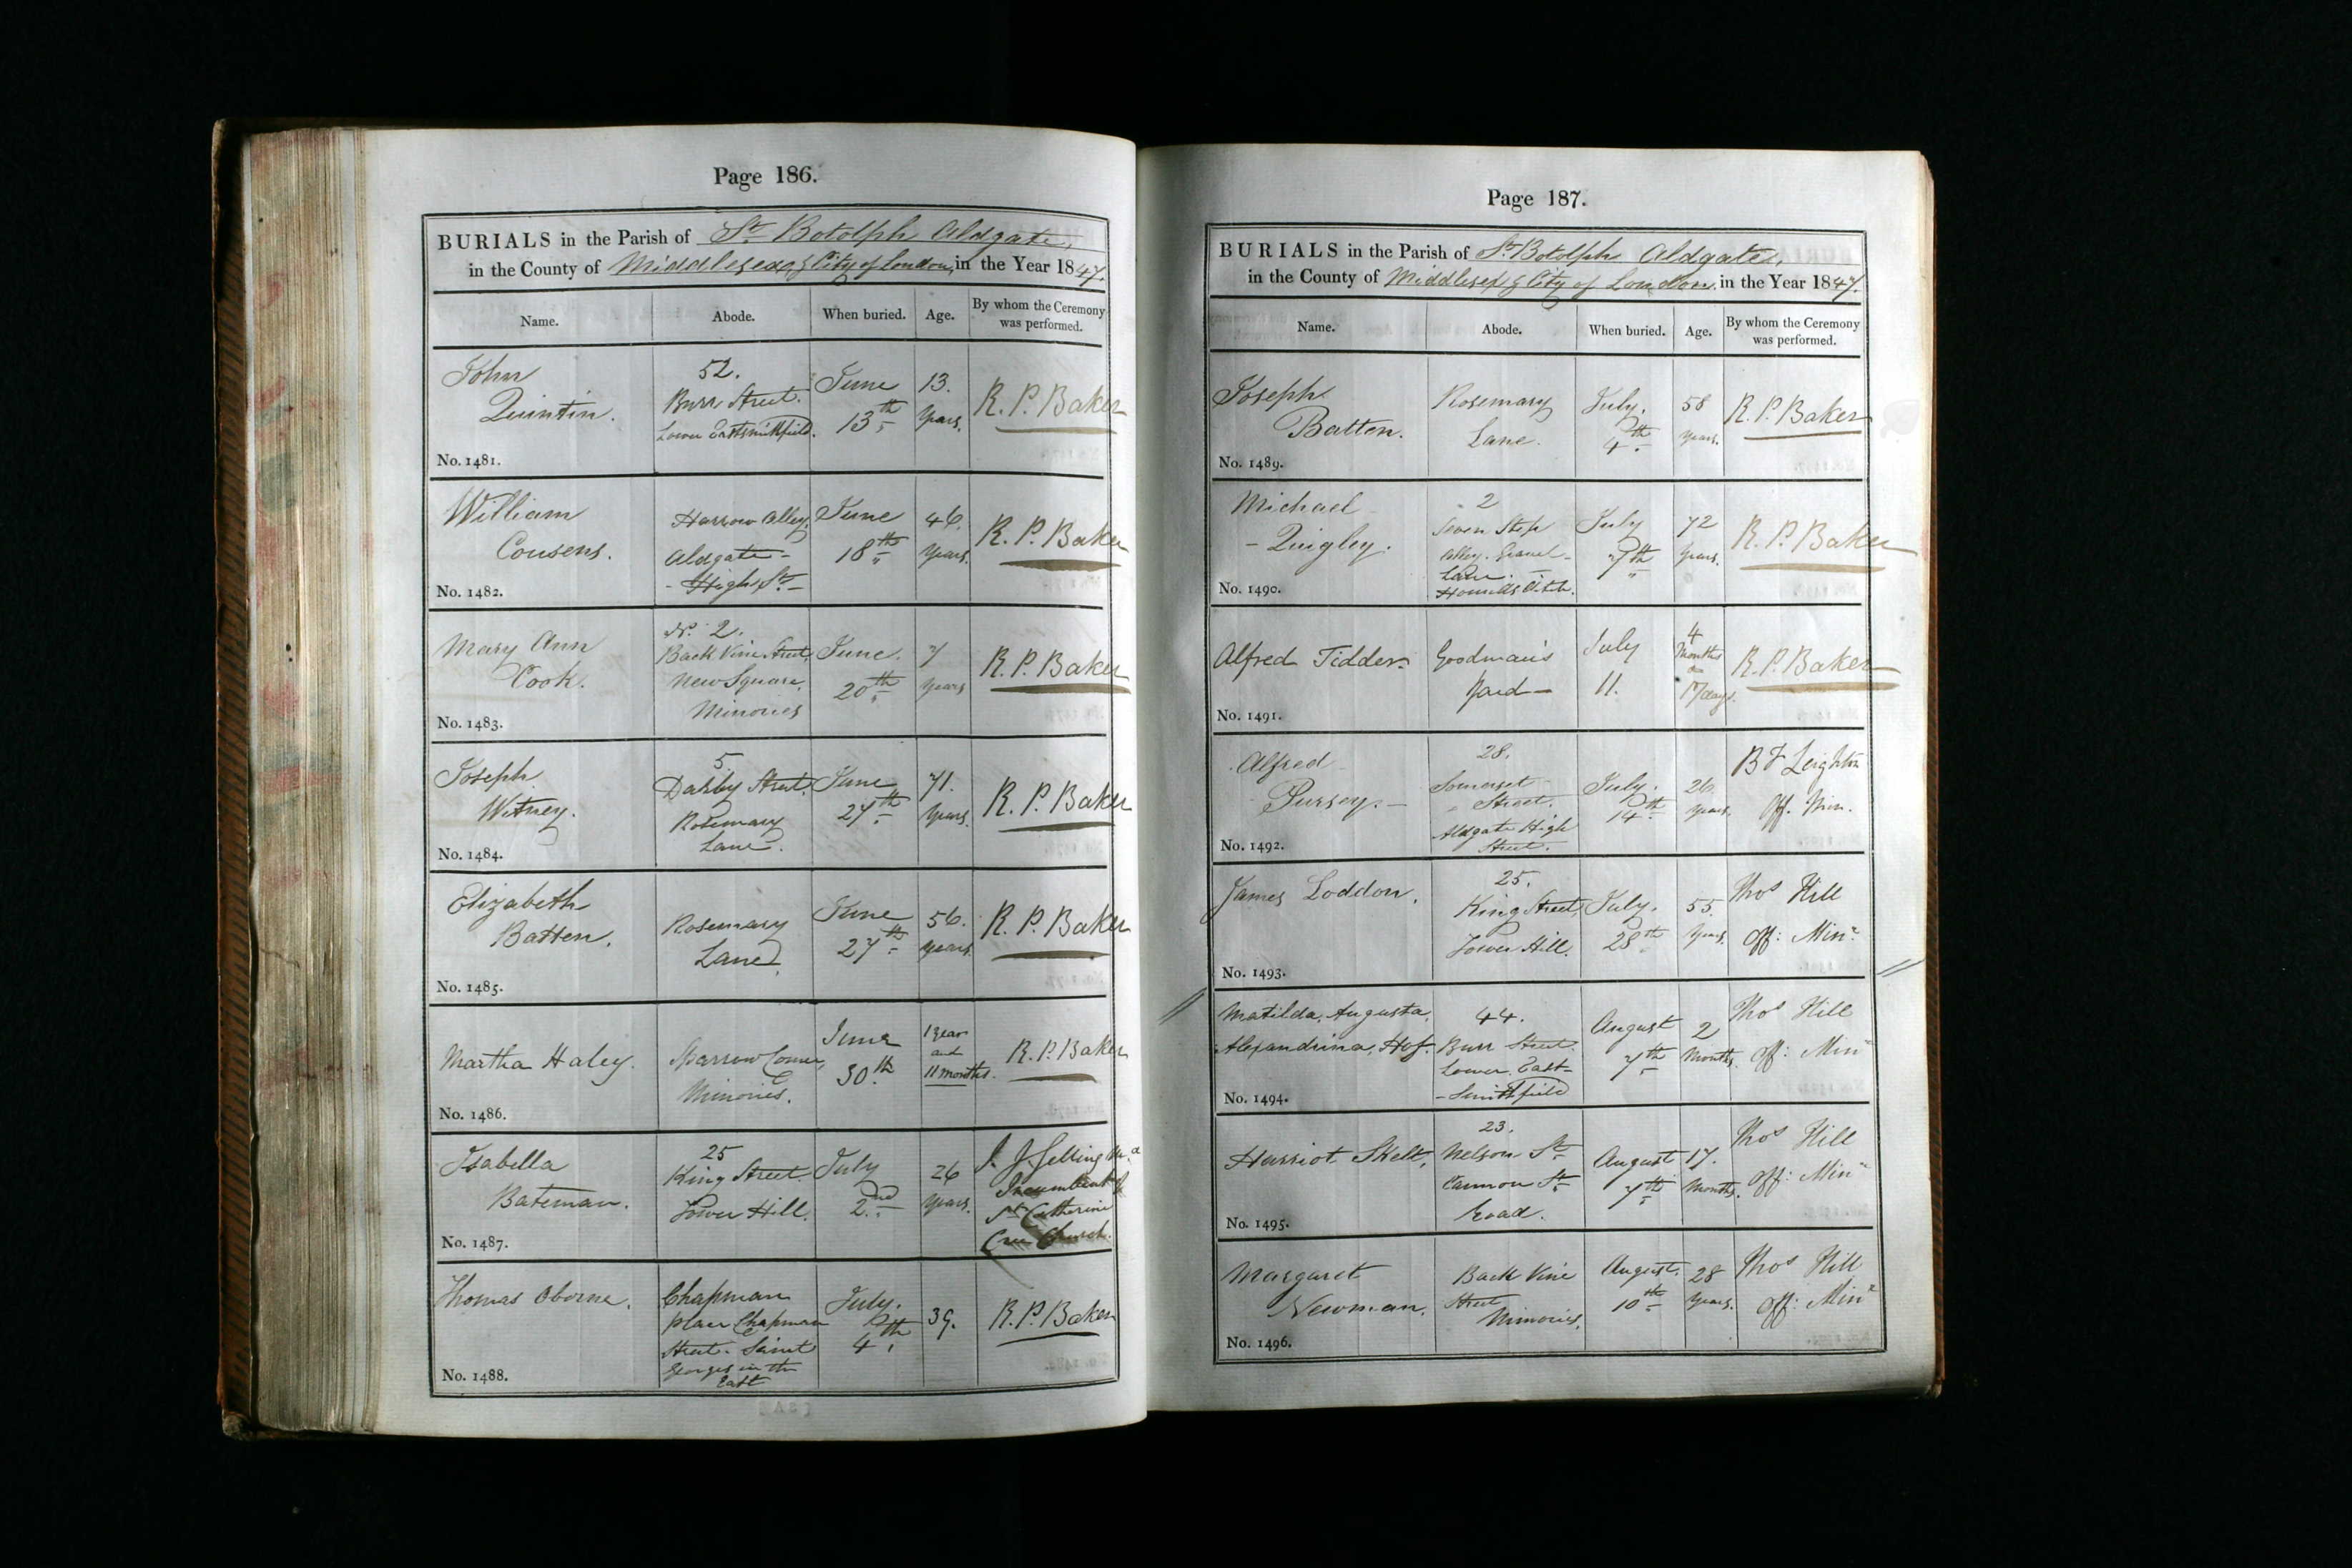 Page 186.
BURIALS in the Parish of St Botolph Aldgate,
in the County of Middlesex & City of London, in the Year 1847.
Name. Abode. When buried. Age. By whom the Ceremony was performed.
John 52. June 13.
Quintin. Burr Street. 13th Years. R. P. Baker
Lower Eastsmithfield.
No. 1481.
William Harrow Alley, June 46.
Cousens. Aldgate - 18th Years. R. P. Baker
- High St -
No. 1482.
Mary Ann No. 2. June. 7
Cook. Back Vine Street, 20th Years R. P. Baker
New Square,
Minories
No. 1483.
Joseph 5. June 71.
Witney. Darby Street. 27th Years. R. P. Baker
Rosemary
Lane.
No. 1484.
Elizabeth Rosemary June 56.
Batten. Lane. 27th Years. R. P. Baker
No. 1485.
Martha Haley. Sparrow Corner, June 1 year
Minories. 30th and R. P. Baker
11 months.
No. 1486.
Isabella 25 July 26
Bateman. King Street. 2nd Years. Incumbent of
Tower Hill. St Catherine
Cree Church.
No. 1487.
Thomas Oborne. Chapman July. 39. R. P. Baker
Place Chapman 4th
Street - Saint
Georges in the
East
No. 1488.
Page 187.
BURIALS in the Parish of St Botolph Aldgate,
in the County of Middlesex & City of London, in the Year 1847.
Name. Abode. When buried. Age. By whom the Ceremony was performed.
Joseph Rosemary July. 58
Batten. Lane. 4th Years. R. P. Baker
No. 1489.
Michael 2 July 72
- Quigley. Seven Step 7th Years. R. P. Baker
Alley. Gravel -
Lane. -
Houndsditch.
No. 1490.
Alfred Tidder. Goodman's July 4
Yard - 11. Months R. P. Baker
17 days.
No. 1491.
Alfred 28. July. 26 B F Leighton
Pursey. - Somerset - 14th Years. Off. Min.
Street.
Aldgate High
Street.
No. 1492.
James Loddon. 25. July. 55. Thos Hill
King Street, 28th Years. Off: Minr
Tower Hill.
No. 1493.
Matilda, Augusta, 44. August 2 Thos Hill
Alexandrina, Hof. Burr Street. 7th Months. Off: Minr
Lower East -
- Smithfield
No. 1494.
Harriot Skelt, 23. August 17. Thos Hill
Nelson St 7th Months. Off: Minr
Cannon St
Road.
No. 1495.
Margaret Back Vine August. 28 Thos Hill
Newman. Street 10th Years. Off: Minr
Minories.
No. 1496.